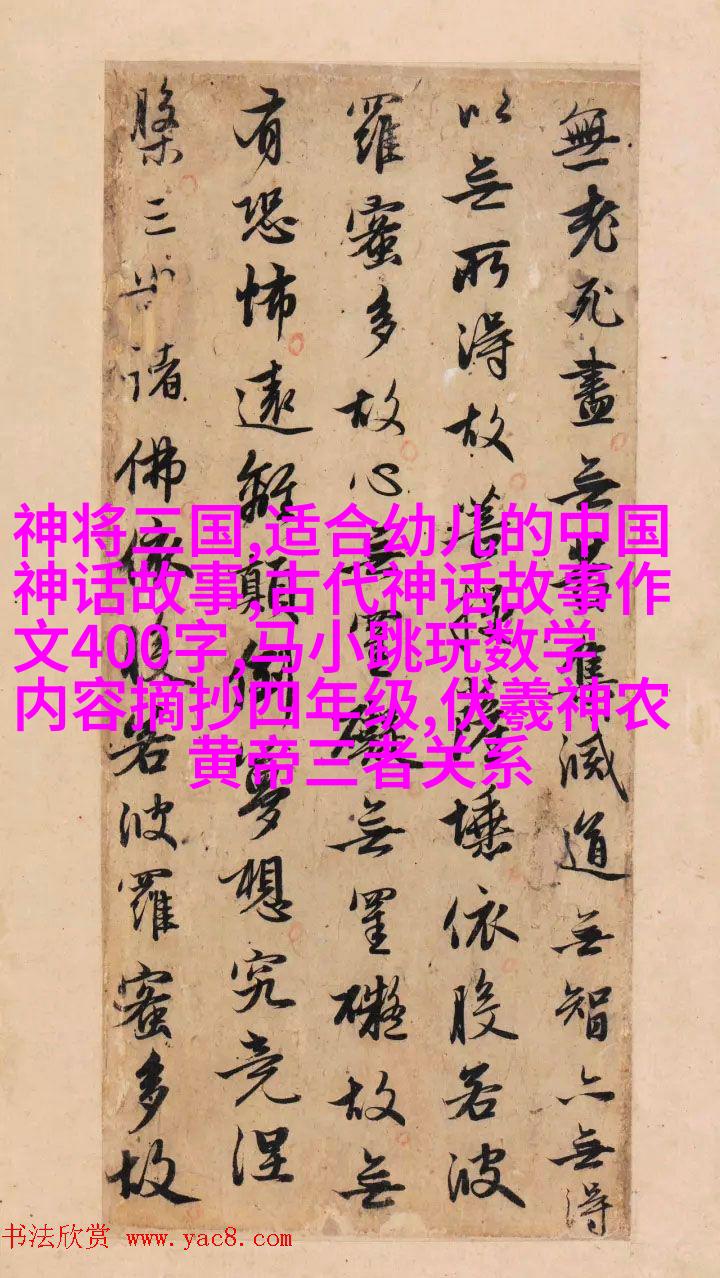 無老死盡无苦集滅道无智亦无得
以无所得故菩提薩埵依般若波
羅蜜多故心无罣礙无罣礙故无
有恐怖遠離顛倒夢想究竟涅
槃三世諸佛依般若波羅蜜多故
神将三国,适合幼儿的中国
神话故事,古代神话故事作
文400字,马小跳玩数学
内容摘抄四年级,伏羲神农
黄帝三者关系
书法欣赏 www.yac8.com